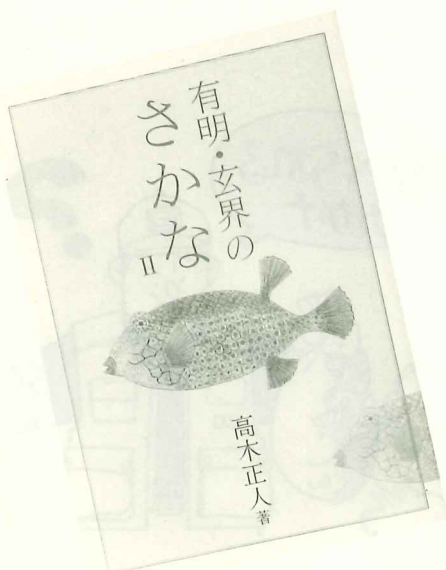 有明・玄界の
さかな
II
高木正人著